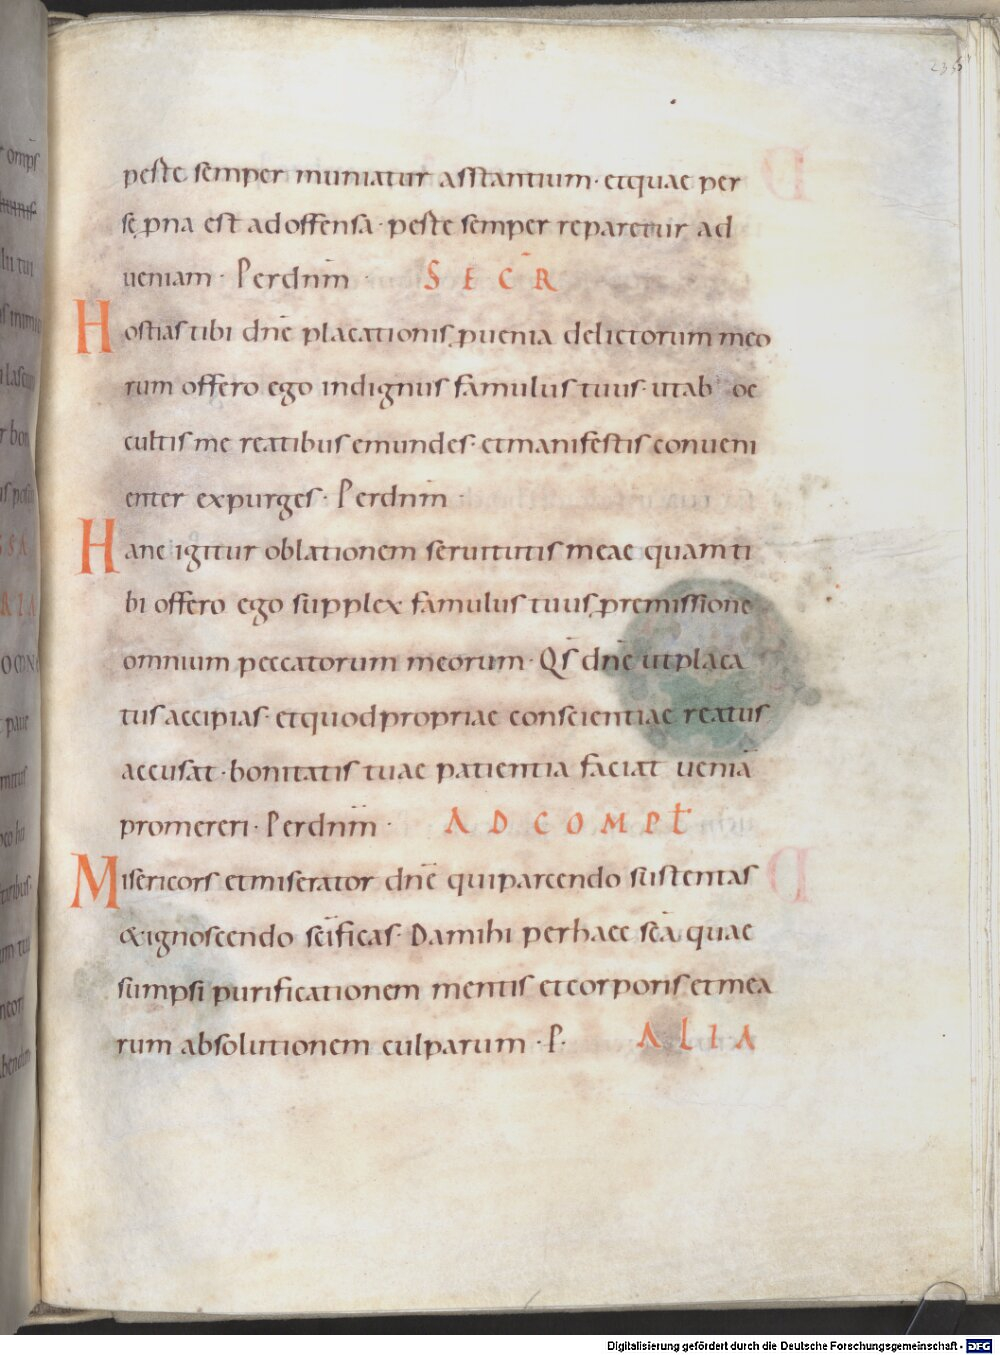 235
peste semper muniatur asstantium· etquae per
se p̱na est adoffensa· peste semper reparetur ad
ueniam· Perdnm̄· SECR̄
Hostias tibi dnē placationis, p̱uenia delictorum meo
rum offero ego indignus famulus tuus· utab oc
cultis me reatibus emundes· etmanifestis conueni
enter expurges· Perdnm̄·
Hanc igitur oblationem seruitutis meae quam ti
bi offero ego supplex famulus tuus, p̱remissione
omnium peccatorum meorum· Qs̄ dnē utplaca
tus accipias· etquodpropriae conscientiae reatus
accusat· bonitatis tuae patientia faciat ueniā
promereri· Perdnm̄· ADCOMPŁ
Misericors etmiserator dnē quiparcendo sustentas
&ignoscendo scīficas· Damihi perhaec scā quae
sumpsi purificationem mentis etcorporis etmea
rum absolutionem culparum· P· ALIA
Digitalisierung gefördert durch die Deutsche Forschungsgemeinschaft - DFG